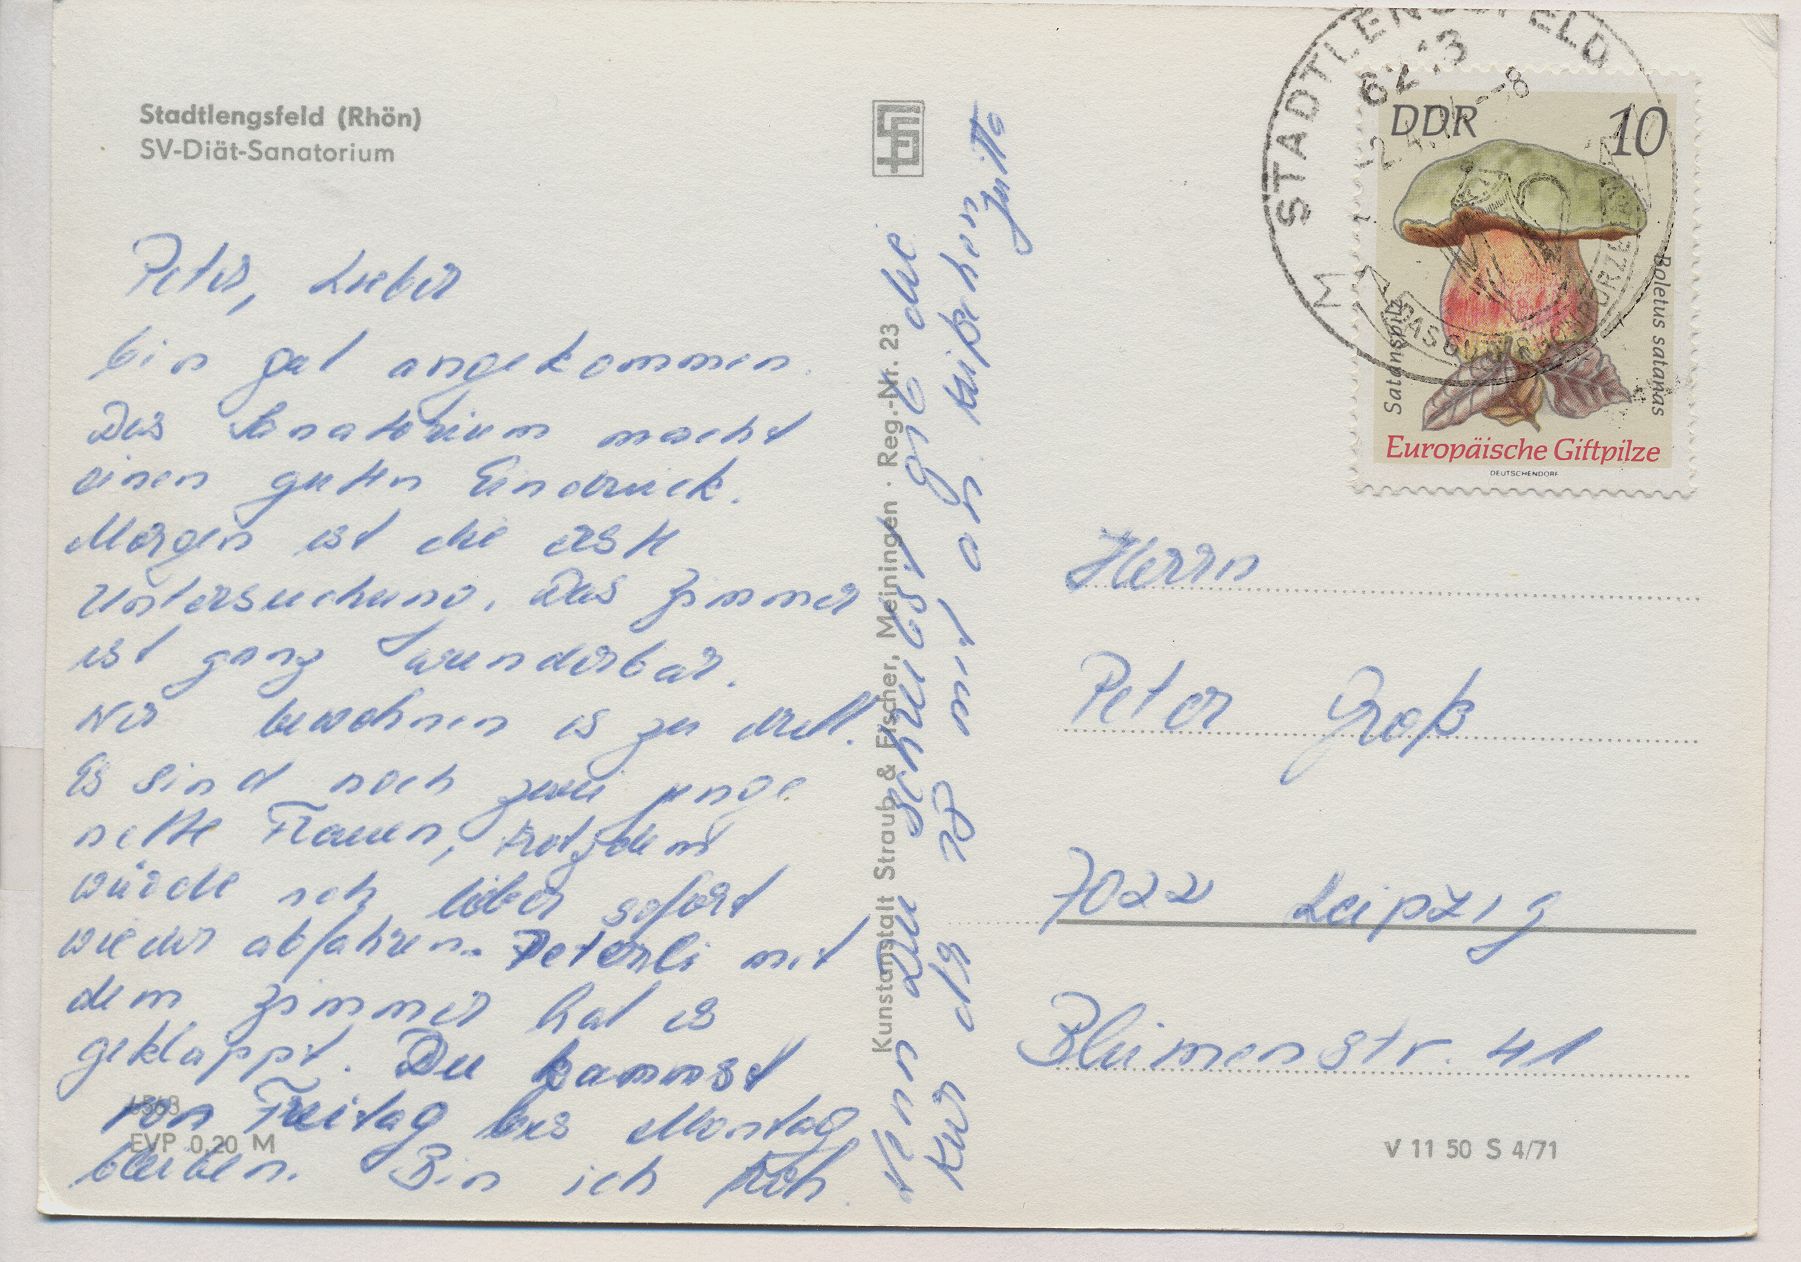 Stadtlengsfeld (Rhön)
SV-Diät-Sanatorium
Peter, Lieber
bin gut angekommen.
Das Sanatorium macht
einen guten Eindruck.
Morgen ist die erste
Untersuchung. Das Zimmer
ist ganz wunderbar.
Wir bewohnen es zu dritt.
Es sind noch zwei junge
nette Frauen, trotzdem
würde ich lieber sofort
wieder abfahren. Peterli mit
dem Zimmer hat es
geklappt. Du kannst
von Freitag bis Montag
bleiben. Bin ich froh.
Wenn Du schreibst gib die
Kur als mit an. Küßchen
Jutta
6563
EVP 0,20 M
Kunstanstalt Straub & Fischer, Meiningen · Reg.-Nr. 23
STADTLENGSFELD
6213
DDR 10
Satanspilz
Boletus satanas
Europäische Giftpilze
DEUTSCHENDORF
Herrn
Peter Groß
7022 Leipzig
Blümenstr. 41
V 11 50 S 4/71